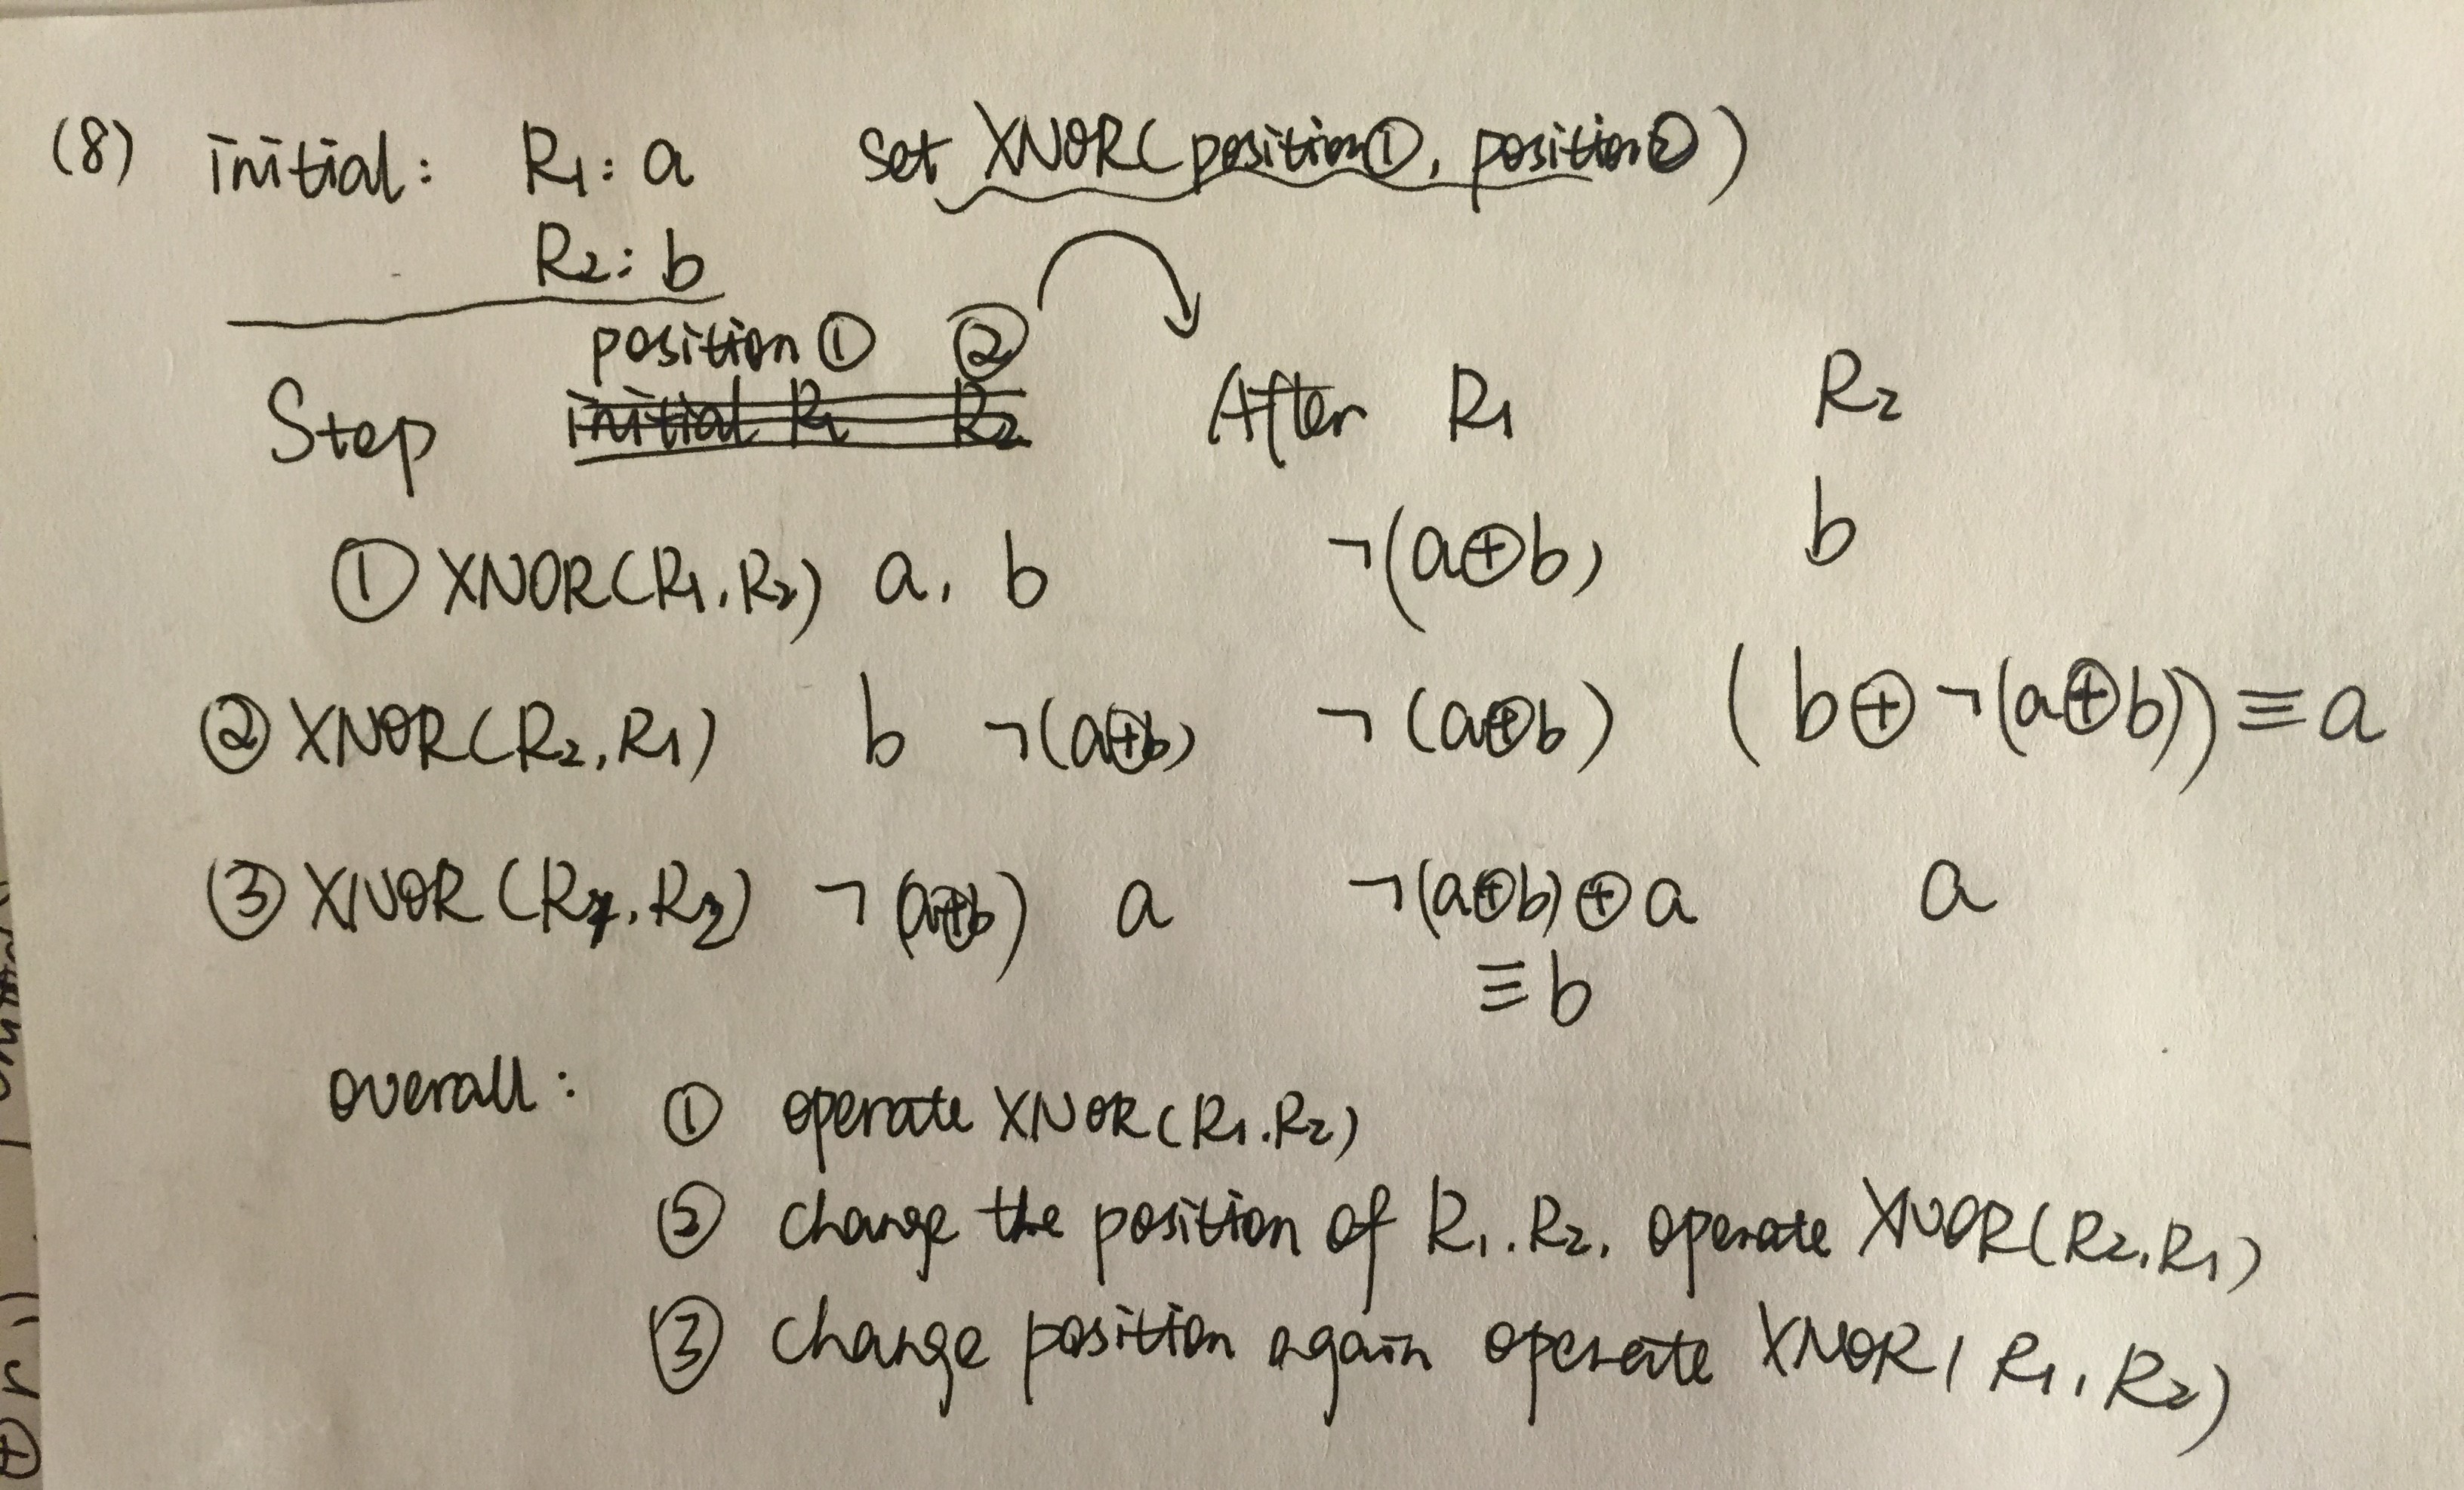 (8) initial: R1: a set XNOR(position①, position②)
R2: b
position① ②
Step After R1 R2
① XNOR(R1, R2) a, b ¬(a⊕b) b
② XNOR(R2, R1) b ¬(a⊕b) ¬(a⊕b) (b⊕¬(a⊕b)) ≡ a
③ XNOR(R1, R2) ¬(a⊕b) a ¬(a⊕b)⊕a a
≡ b
overall: ① operate XNOR(R1.R2)
② change the position of R1.R2, operate XNOR(R2,R1)
③ change position again operate XNOR(R1,R2)